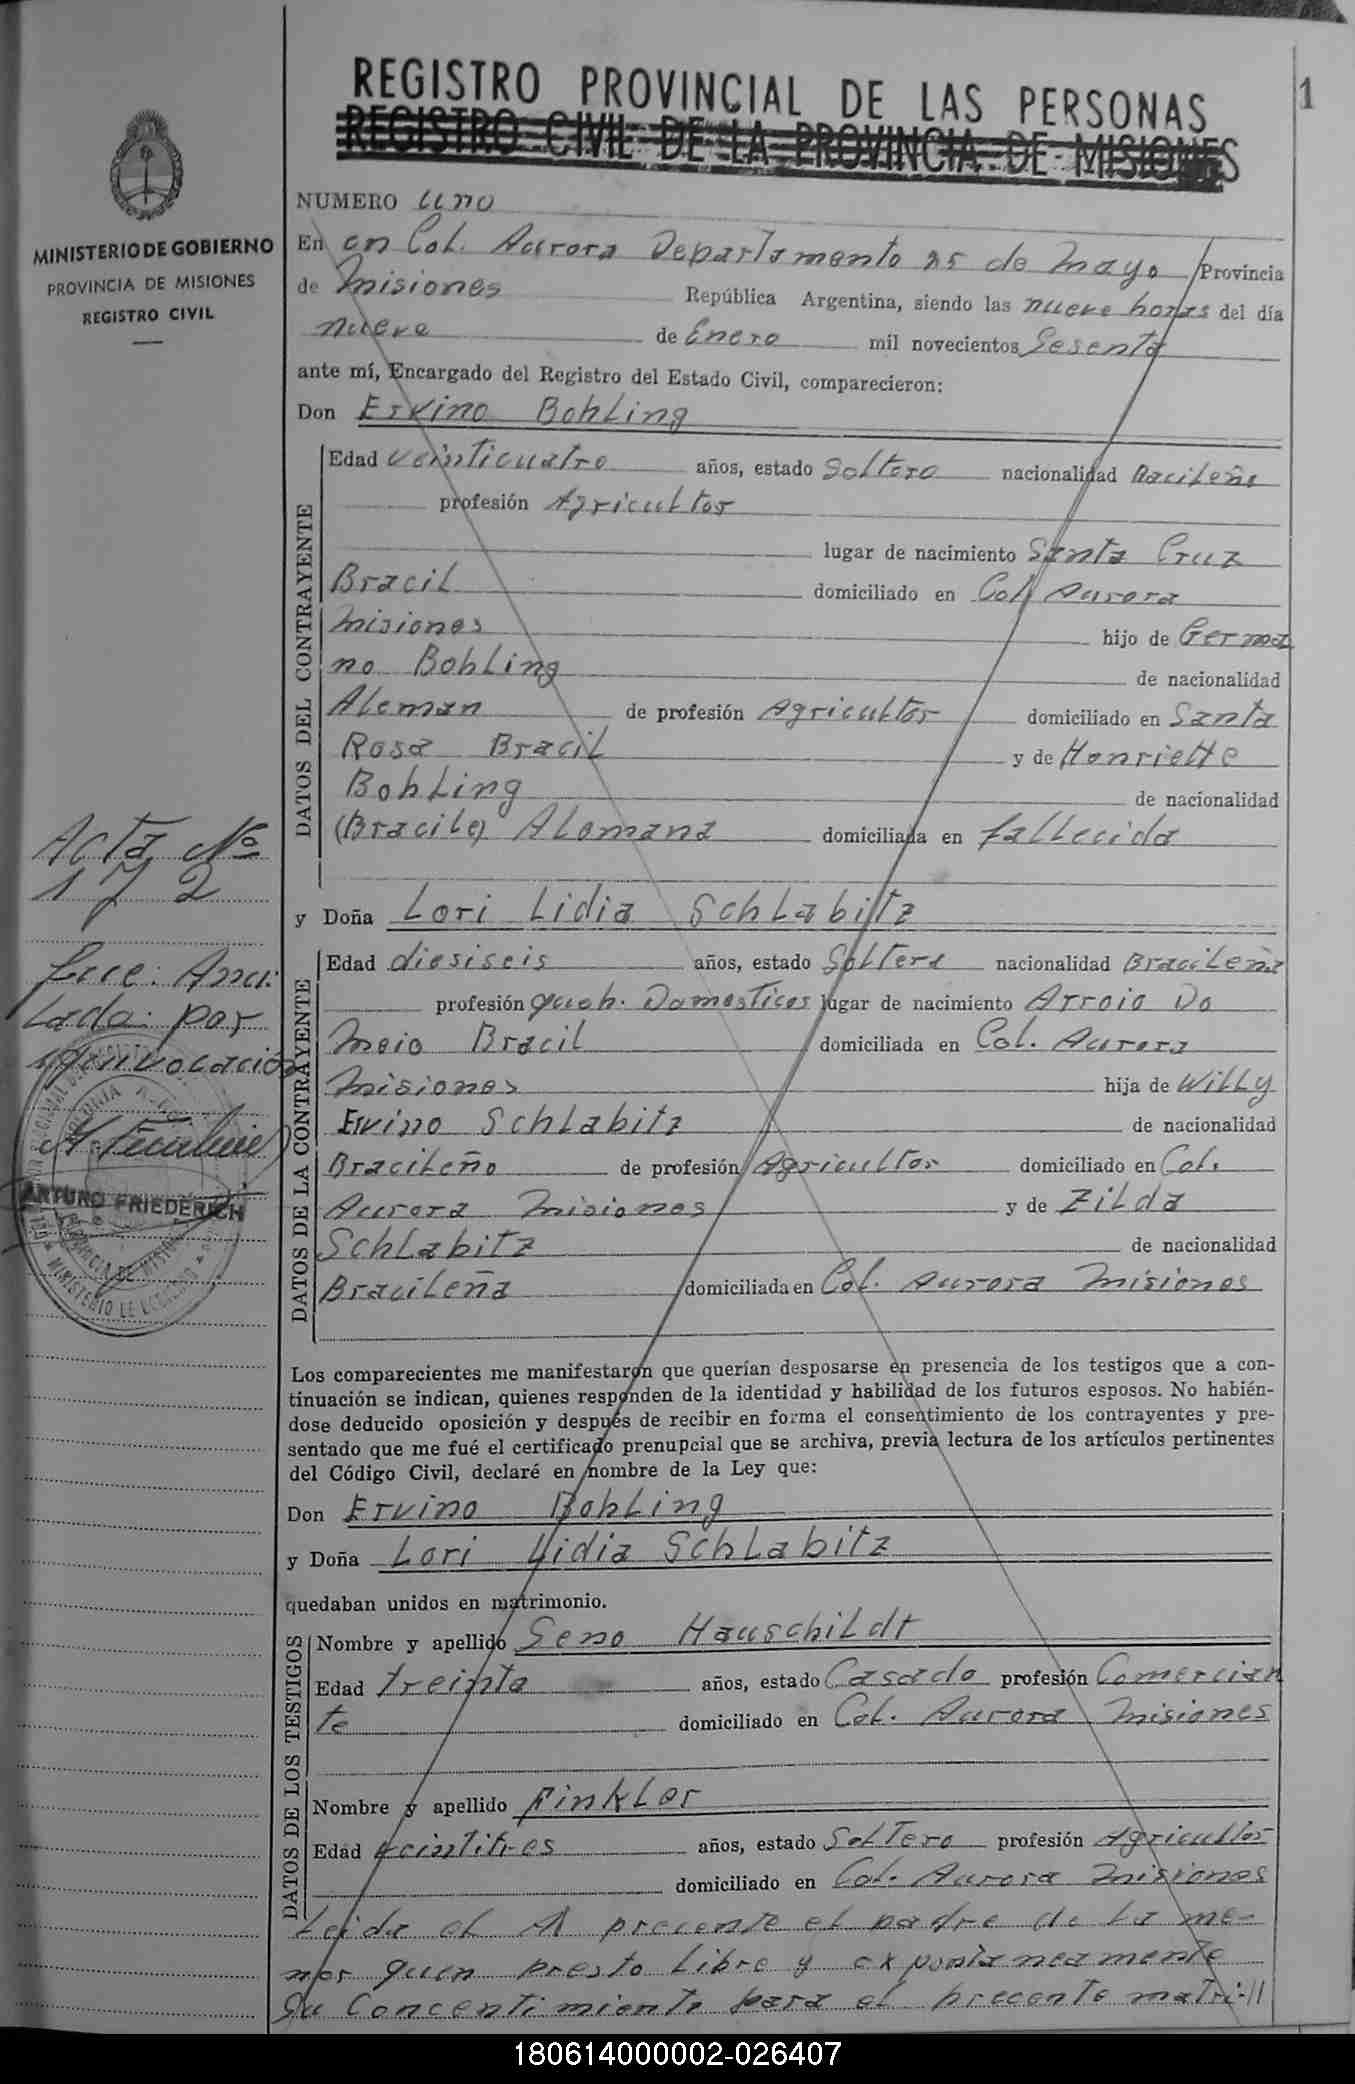 REGISTRO PROVINCIAL DE LAS PERSONAS
REGISTRO CIVIL DE LA PROVINCIA DE MISIONES
1
MINISTERIO DE GOBIERNO
PROVINCIA DE MISIONES
REGISTRO CIVIL
NUMERO uno
En en Col. Aurora Departamento 25 de Mayo Provincia
de Misiones República Argentina, siendo las nueve horas del día
nueve de Enero mil novecientos Sesenta
ante mí, Encargado del Registro del Estado Civil, comparecieron:
Don Ervino Bohling
DATOS DEL CONTRAYENTE
Edad veinticuatro años, estado Soltero nacionalidad Bracileño
profesión Agricultor
lugar de nacimiento Santa Cruz
Bracil domiciliado en Col. Aurora
Misiones hijo de Germa
no Bohling de nacionalidad
Aleman de profesión Agricultor domiciliado en Santa
Rosa Bracil y de Henriette
Bohling de nacionalidad
(Bracile) Alemana domiciliada en fallecida
y Doña Lori Lidia Schlabitz
DATOS DE LA CONTRAYENTE
Edad diesiseis años, estado Soltera nacionalidad Bracileña
profesión queh. Domesticos lugar de nacimiento Arroio Do
Meio Bracil domiciliada en Col. Aurora
Misiones hija de Willy
Ervino Schlabitz de nacionalidad
Bracileño de profesión Agricultor domiciliado en Col.
Aurora Misiones y de Zilda
Schlabitz de nacionalidad
Bracileña domiciliada en Col. Aurora Misiones
Acta No
172
fece: Anu:
lada: por
equivocación
ARTURO FRIEDERICH
Los comparecientes me manifestaron que querían desposarse en presencia de los testigos que a con-
tinuación se indican, quienes responden de la identidad y habilidad de los futuros esposos. No habién-
dose deducido oposición y después de recibir en forma el consentimiento de los contrayentes y pre-
sentado que me fué el certificado prenupcial que se archiva, previa lectura de los artículos pertinentes
del Código Civil, declaré en nombre de la Ley que:
Don Ervino Bohling
y Doña Lori Lidia Schlabitz
quedaban unidos en matrimonio.
DATOS DE LOS TESTIGOS
Nombre y apellido Seno Hauschildt
Edad treinta años, estado Casado profesión Comercian
te domiciliado en Col. Aurora Misiones
Nombre y apellido Finkler
Edad veintitres años, estado Soltero profesión Agricultor
domiciliado en Col. Aurora Misiones
Leida el A precente el padre de la me-
nor quen presto libre y expontaneamente
su Concentimiento para el precente matri-//
180614000002-026407